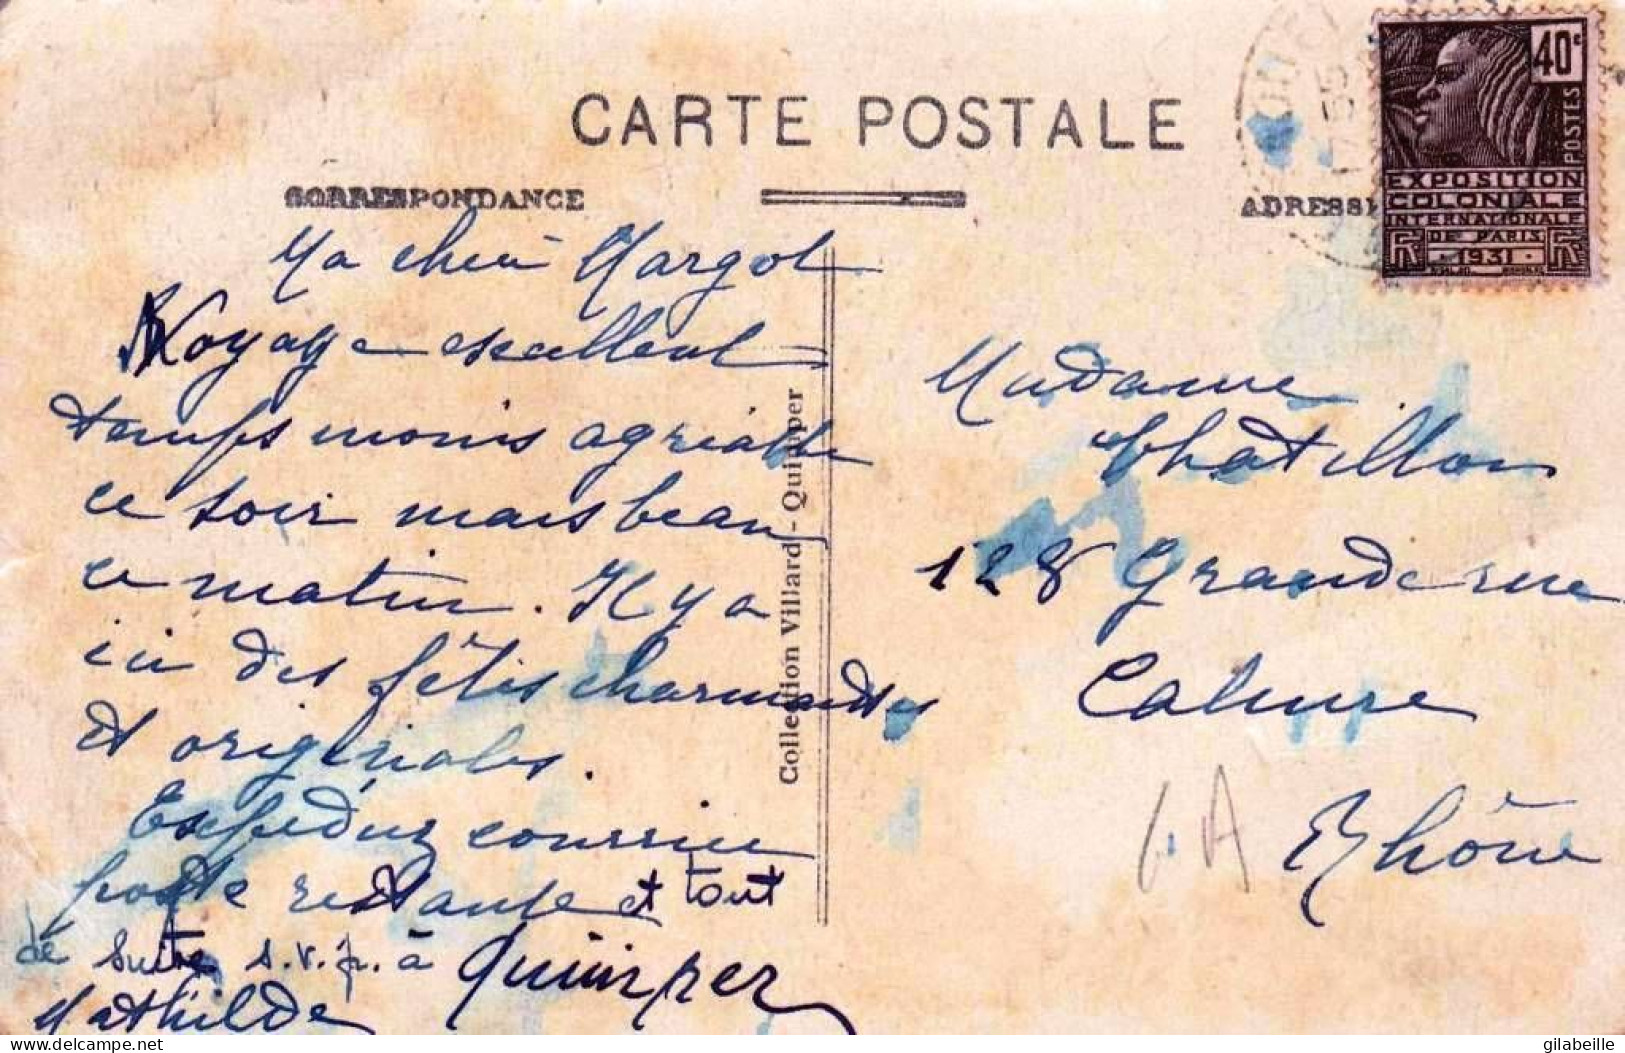 CARTE POSTALE
CORRESPONDANCE
ADRESSE
40c
POSTES
EXPOSITION
COLONIALE
INTERNATIONALE
DE PARIS
1931
Ma chère Margot
Voyage excellent
temps moins agréable
ce soir mais beau
ce matin. Il y a
ici des fêtes charmantes
et originales.
Expédiez courrier
poste restante et tout
de suite s.v.p. à Quimper
Mathilde
Collection Villard - Quimper
Madame
Chatillon
128 Grande rue
Caluire
Rhône
delcampe.net
gilabeille